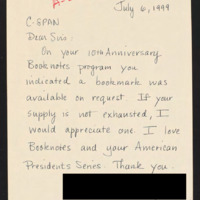 July 6, 1999
C-SPAN
Dear Sirs:
On your 10th Anniversary
Booknotes program you
indicated a bookmark was
available on request. If your
supply is not exhausted, I
would appreciate one. I love
Booknotes and your American
Presidents Series. Thank you.